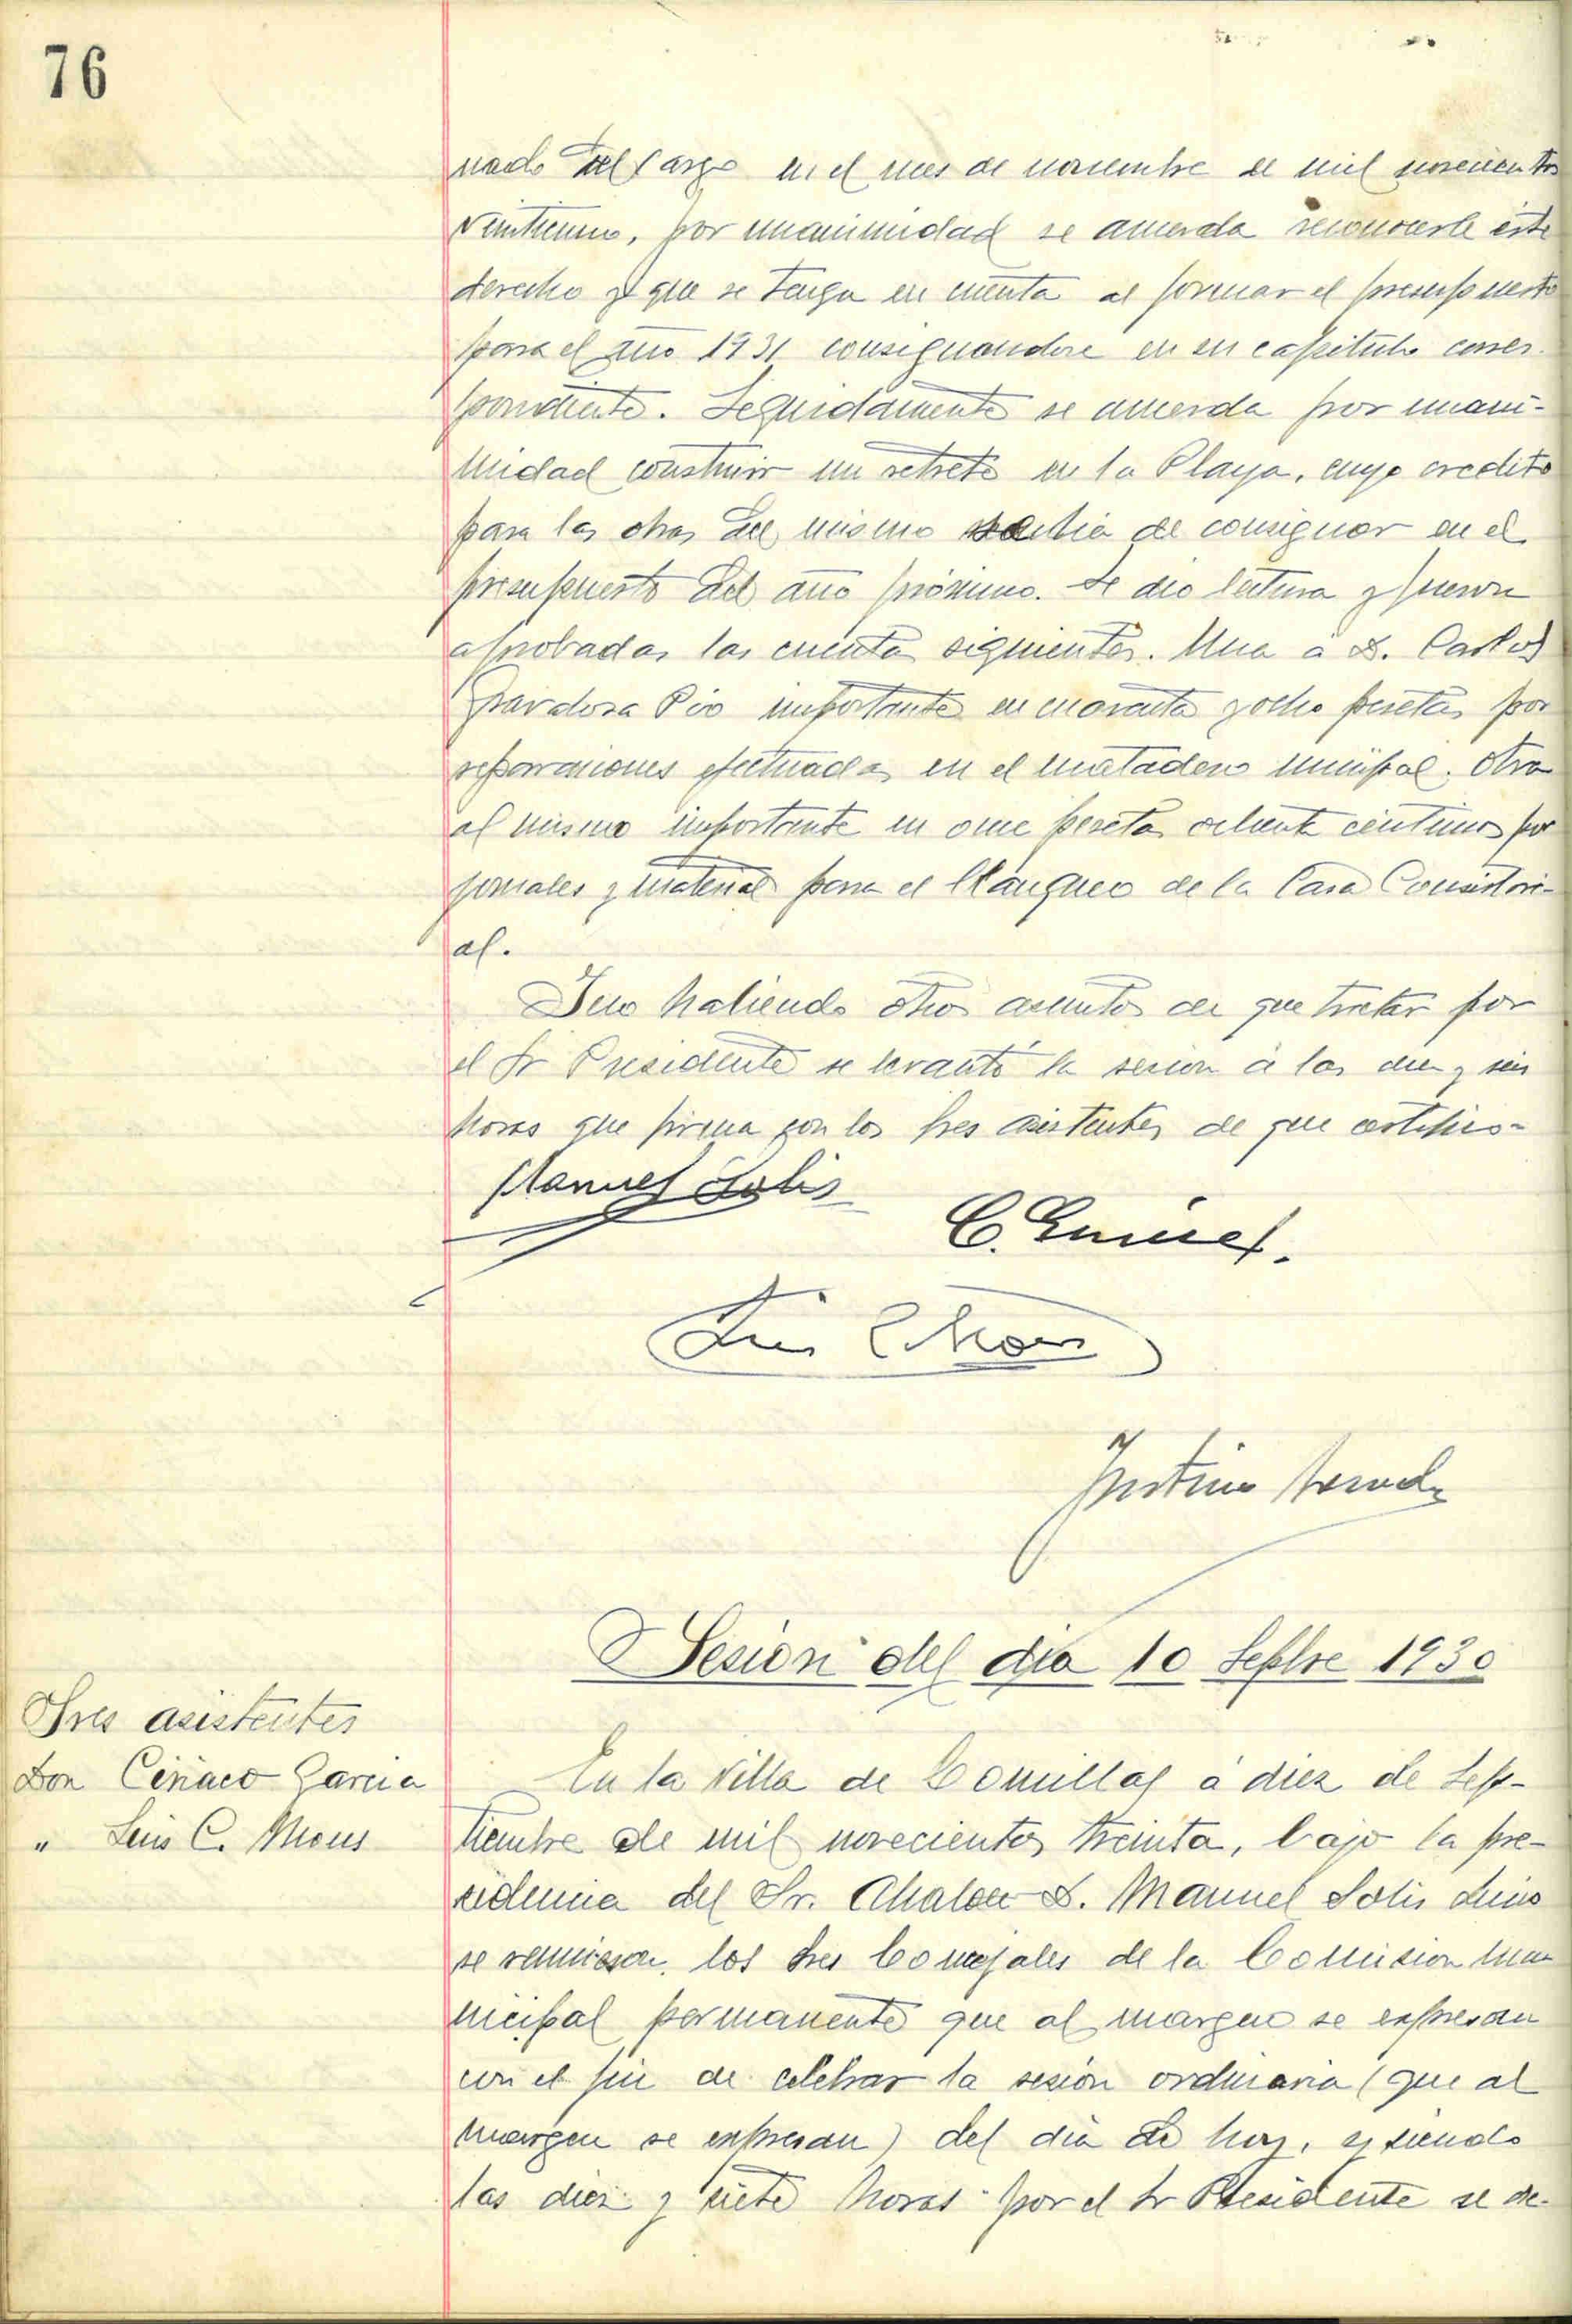 76
nado del cargo en el mes de noviembre de mil novecientos
veintiuno, por unanimidad se acuerda reconocerle este
derecho y que se tenga en cuenta al formar el presupuesto
para el año 1931 consignandose en su capitulo corres-
pondiente. Seguidamente se acuerda por unani-
midad construir un retrete en la Playa, cuyo credito
para las obras del mismo de consignar en el
presupuesto del año próximo. Se dio lectura y fueron
aprobadas las cuentas siguientes. Una a D. Carlos
Pio importante en cuarenta y ocho pesetas por
reparaciones efectuadas en el matadero municipal. Otra
al mismo importante en once pesetas ochenta centimos por
jornales y material para el blanqueo de la Casa Consistori-
al.
Y no habiendo otros asuntos de que tratar por
el Sr Presidente se levantó la sesion a las diez y seis
horas que firma con los Sres asistentes de que certifico-
Manuel Solis
C.
Luis C. Mous
Sesion del dia 10 Sepbre 1930
Sres asistentes
Don Ciriaco Garcia
" Luis C. Mous
En la Villa de Comillas a diez de Sep-
tiembre de mil novecientos treinta, bajo la pre-
sidencia del Sr. Alcalde D. Manuel Solis
se reunieron los Sres Concejales de la Comision Mu
nicipal permanente que al margen se expresan
con el fin de celebrar la sesión ordinaria (que al
margen se expresan) del dia de hoy, y siendo
las diez y siete horas por el Sr Presidente se de-